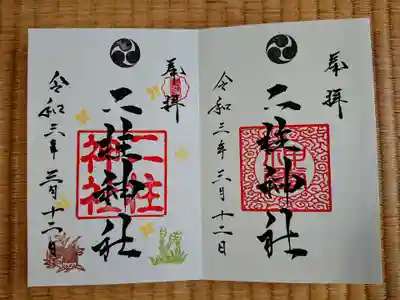 奉拝
二柱神社
令和三年三月十二日
奉拝
二柱神社
二柱神社
令和三年三月十二日